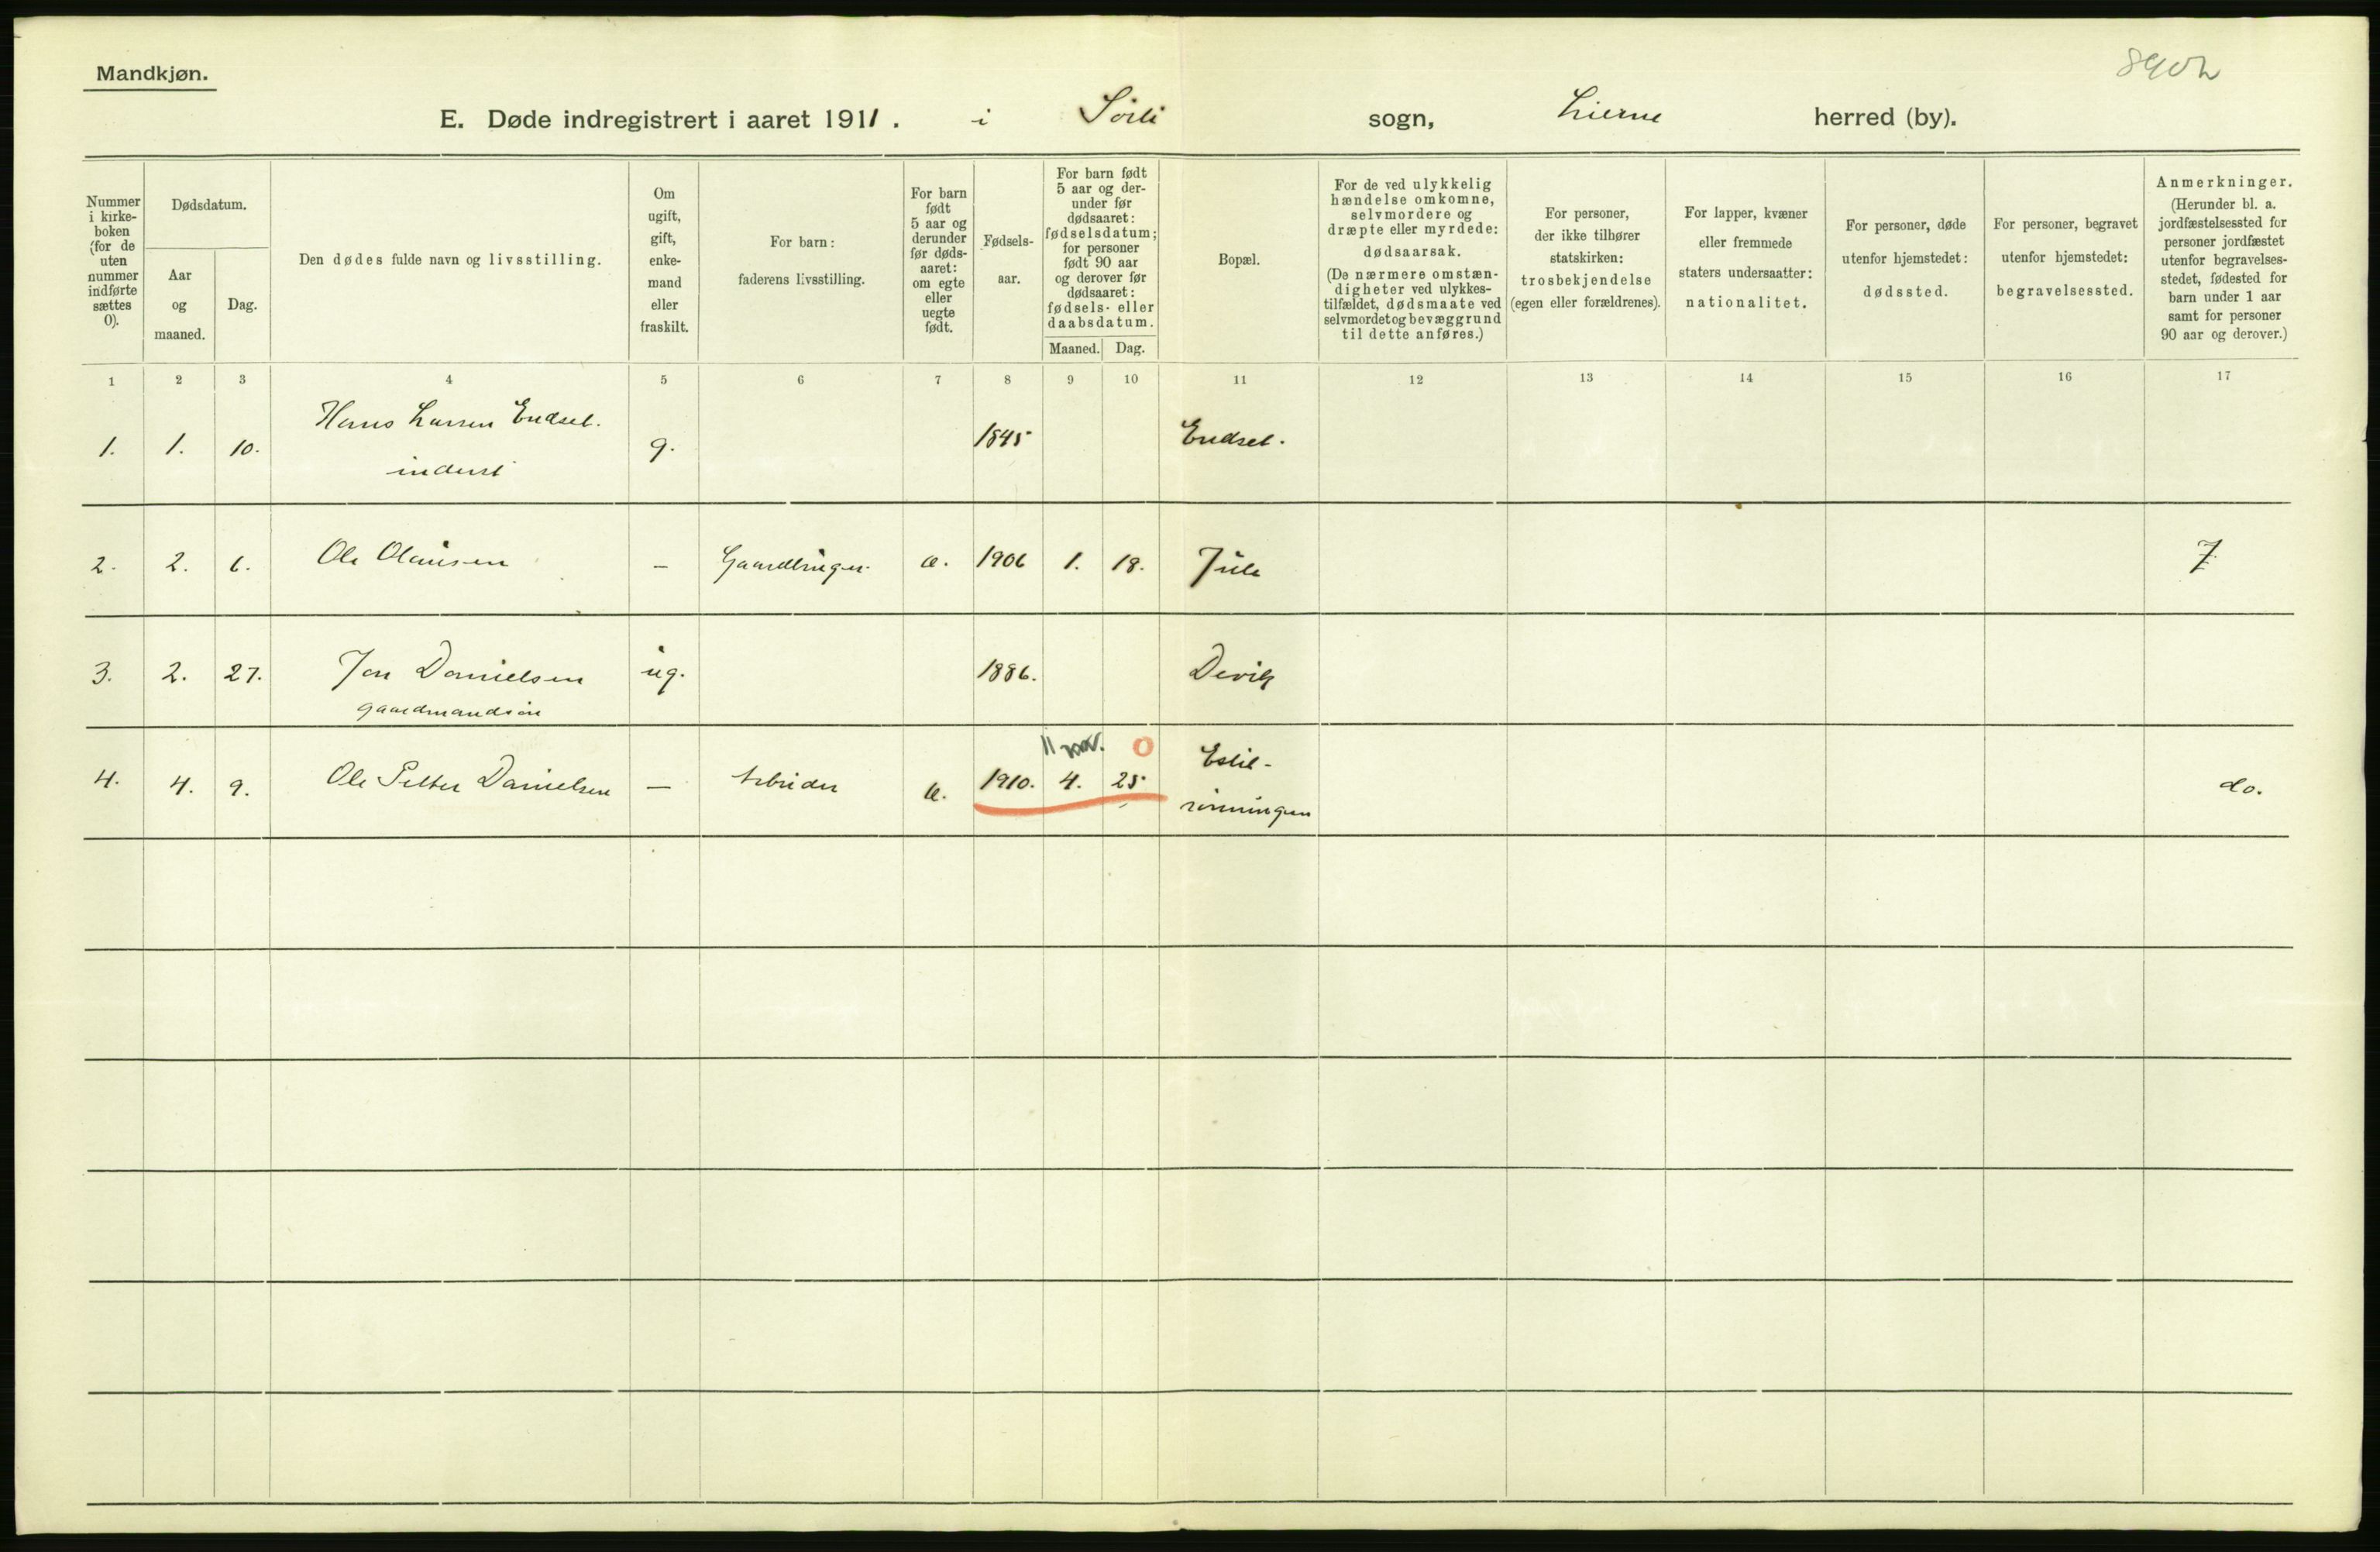 Mandkjøn.
890h
E. Døde indregistrert i aaret 1911. i Sörli sogn, Lierne herred (by).
Nummer i kirke- boken (for de uten nummer indførte sættes 0).
Dødsdatum.
Aar og maaned.
Dag.
Den dødes fulde navn og livsstilling.
Om ugift, gift, enke- mand eller fraskilt.
For barn: faderens livsstilling.
For barn født 5 aar og derunder før døds- aaret: om egte eller uegte født.
Fødsels- aar.
For barn født 5 aar og der- under før dødsaaret: fødselsdatum; for personer født 90 aar og derover før dødsaaret: fødsels- eller daabsdatum.
Maaned. Dag.
Bopæl.
For de ved ulykkelig hændelse omkomne, selvmordere og dræpte eller myrdede: dødsaarsak. (De nærmere omstæn- digheter ved ulykkes- tilfældet, dødsmaate ved selvmordet og bevæggrund til dette anføres.)
For personer, der ikke tilhører statskirken: trosbekjendelse (egen eller forældrenes).
For lapper, kvæner eller fremmede staters undersaatter: nationalitet.
For personer, døde utenfor hjemstedet: dødssted.
For personer, begravet utenfor hjemstedet: begravelsessted.
Anmerkninger. (Herunder bl. a. jordfæstelsessted for personer jordfæstet utenfor begravelses- stedet, fødested for barn under 1 aar samt for personer 90 aar og derover.)
1 2 3 4 5 6 7 8 9 10 11 12 13 14 15 16 17
Hans Larsen Endsel.
1. 1. 10. g. 1845 Endsel.
inderst
2. 2. 6. Ole Olausen — Gaardbruger. e. 1906 1. 18. Jule 7
3. 2. 27. Jon Danielsen ug. 1886. Devik
gaardmandsön
0 Estil-
4. 4. 9. Ole Petter Danielsen — Arbeider e. 1910. 4. 25 do.
rönningen